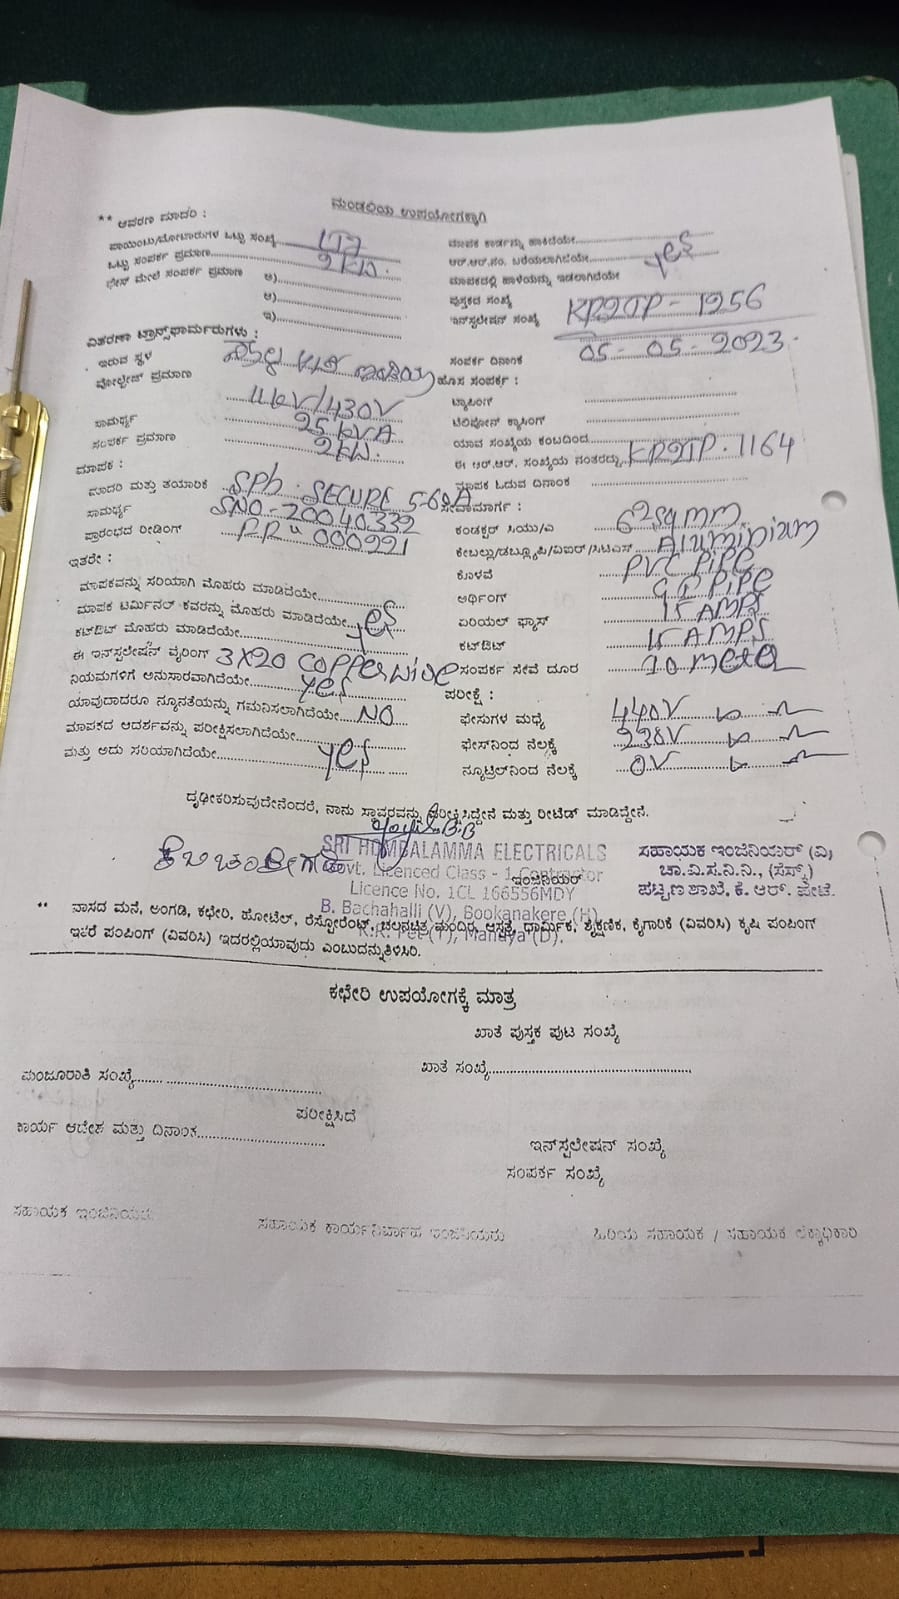 ಮಂಡಲಿಯ ಉಪಯೋಗಕ್ಕಾಗಿ
** ಆವರಣ ಮಾದರಿ :
ಪಾಯಿಂಟು/ಮೋಟಾರುಗಳ ಒಟ್ಟು ಸಂಖ್ಯೆ
ಒಟ್ಟು ಸಂಪರ್ಕ ಪ್ರಮಾಣ 2KW.
ಫೇಸ್ ಮೇಲೆ ಸಂಪರ್ಕ ಪ್ರಮಾಣ ಅ)
ಆ)
ಇ)
ವಿತರಣಾ ಟ್ರಾನ್ಸ್‌ಫಾರ್ಮರುಗಳು :
ಇರುವ ಸ್ಥಳ
ವೋಲ್ಟೇಜ್ ಪ್ರಮಾಣ 11KV/430V
ಸಾಮರ್ಥ್ಯ 25 KVA
ಸಂಪರ್ಕ ಪ್ರಮಾಣ 2KW.
ಮಾಪಕ :
ಮಾದರಿ ಮತ್ತು ತಯಾರಿಕೆ SPh. SECURE 5-60A
ಸಾಮರ್ಥ್ಯ SNO-20040332
ಪ್ರಾರಂಭದ ರೀಡಿಂಗ್ 000221
ಇತರೇ :
ಮಾಪಕವನ್ನು ಸರಿಯಾಗಿ ಮೊಹರು ಮಾಡಿದೆಯೇ
ಮಾಪಕ ಟರ್ಮಿನಲ್ ಕವರನ್ನು ಮೊಹರು ಮಾಡಿದೆಯೇ yes
ಕಟ್‌ಔಟ್ ಮೊಹರು ಮಾಡಿದೆಯೇ
ಈ ಇನ್‌ಸ್ಟಲೇಷನ್ ವೈರಿಂಗ್ 3X20 COPPER wire
ನಿಯಮಗಳಿಗೆ ಅನುಸಾರವಾಗಿದೆಯೇ yes
ಯಾವುದಾದರೂ ನ್ಯೂನತೆಯನ್ನು ಗಮನಿಸಲಾಗಿದೆಯೇ NO
ಮಾಪಕದ ಆದರ್ಶವನ್ನು ಪರೀಕ್ಷಿಸಲಾಗಿದೆಯೇ
ಮತ್ತು ಅದು ಸರಿಯಾಗಿದೆಯೇ yes
ಮಾಪಕ ಕಾರ್ಡನ್ನು ಹಾಕಿದೆಯೇ
ಆರ್.ಆರ್.ನಂ. ಬರೆಯಲಾಗಿದೆಯೇ yes
ಮಾಪಕದಲ್ಲಿ ಹಾಳೆಯನ್ನು ಇಡಲಾಗಿದೆಯೇ
ಪುಸ್ತಕದ ಸಂಖ್ಯೆ
ಇನ್‌ಸ್ಟಲೇಷನ್ ಸಂಖ್ಯೆ KP2TP-1256
ಸಂಪರ್ಕ ದಿನಾಂಕ 05-05-2023
ಹೊಸ ಸಂಪರ್ಕ :
ಟ್ಯಾಪಿಂಗ್
ಟೆಲಿಫೋನ್ ಕ್ರಾಸಿಂಗ್
ಯಾವ ಸಂಖ್ಯೆಯ ಕಂಬದಿಂದ
ಈ ಆರ್.ಆರ್. ಸಂಖ್ಯೆಯ ನಂತರದ್ದು KP2TP.1164
ಮಾಪಕ ಓದುವ ದಿನಾಂಕ
ಸೇವಾಮಾರ್ಗ :
ಕಂಡಕ್ಟರ್ ಸಿಯು/ಎ 62sqmm
ಕೇಬಲ್ಲು/ಡಬ್ಲ್ಯೂಪಿ/ವಿಐಆರ್/ಸಿಟಿಎಸ್ Aluminium
ಕೊಳವೆ PVC PiPe
ಅರ್ಥಿಂಗ್ G I PiPe
ಏರಿಯಲ್ ಫ್ಯೂಸ್ 15 AMPS
ಕಟ್‌ಔಟ್ 15 AMPS
ಸಂಪರ್ಕ ಸೇವೆ ದೂರ 10 meter
ಪರೀಕ್ಷೆ :
ಫೇಸುಗಳ ಮಧ್ಯೆ 440V
ಫೇಸ್‌ನಿಂದ ನೆಲಕ್ಕೆ 230V
ನ್ಯೂಟ್ರಲ್‌ನಿಂದ ನೆಲಕ್ಕೆ 0.V
ದೃಢೀಕರಿಸುವುದೇನೆಂದರೆ, ನಾನು ಸ್ಥಾವರವನ್ನು ಪರೀಕ್ಷಿಸಿದ್ದೇನೆ ಮತ್ತು ರೀಟೆಡ್ ಮಾಡಿದ್ದೇನೆ.
SRI HOMBALAMMA ELECTRICALS
Govt. Licenced Class - 1 Contractor
ಇಂಜಿನಿಯರ್
Licence No. 1CL 166556MDY
B. Bachahalli (V), Bookanakere (H),
K.R. Pet (T), Mandya (D).
ಸಹಾಯಕ ಇಂಜಿನಿಯರ್ (ವಿ)
ಚಾ.ವಿ.ಸ.ನಿ.ನಿ.,
ಪಟ್ಟಣ ಶಾಖೆ, ಕೆ. ಆರ್. ಪೇಟೆ.
** ವಾಸದ ಮನೆ, ಅಂಗಡಿ, ಕಛೇರಿ, ಹೋಟೆಲ್, ರೆಸ್ಟೋರೆಂಟ್, ಚಲನಚಿತ್ರ ಮಂದಿರ, ಆಸ್ಪತ್ರೆ, ಧಾರ್ಮಿಕ, ಶೈಕ್ಷಣಿಕ, ಕೈಗಾರಿಕೆ (ವಿವರಿಸಿ) ಕೃಷಿ ಪಂಪಿಂಗ್
ಇತರೆ ಪಂಪಿಂಗ್ (ವಿವರಿಸಿ) ಇದರಲ್ಲಿಯಾವುದು ಎಂಬುದನ್ನು ತಿಳಿಸಿರಿ.
ಕಛೇರಿ ಉಪಯೋಗಕ್ಕೆ ಮಾತ್ರ
ಖಾತೆ ಪುಸ್ತಕ ಪುಟ ಸಂಖ್ಯೆ
ಮಂಜೂರಾತಿ ಸಂಖ್ಯೆ
ಖಾತೆ ಸಂಖ್ಯೆ
ಪರೀಕ್ಷಿಸಿದೆ
ಕಾರ್ಯ ಆದೇಶ ಮತ್ತು ದಿನಾಂಕ
ಇನ್‌ಸ್ಟಲೇಷನ್ ಸಂಖ್ಯೆ
ಸಂಪರ್ಕ ಸಂಖ್ಯೆ
ಸಹಾಯಕ ಇಂಜಿನಿಯರು
ಸಹಾಯಕ ಕಾರ್ಯನಿರ್ವಾಹಕ ಇಂಜಿನಿಯರು
ಹಿರಿಯ ಸಹಾಯಕ / ಸಹಾಯಕ ಲೆಕ್ಕಾಧಿಕಾರಿ